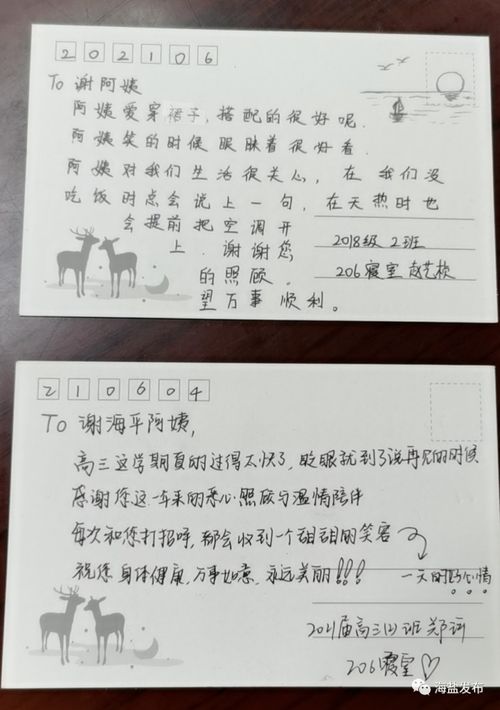 202106
To 谢阿姨
阿姨爱穿裙子，搭配的很好呢.
阿姨笑的时候眼眯着很好看.
阿姨对我们生活很关心，在我们没
吃饭时总会说上一句，在天热时也
会提前把空调开
上.谢谢您
的照顾.
望万事顺利。
2018级 2班
206寝室 赵艺
210604
To 谢海平阿姨，
高三这学期真的过得太快了，眨眼就到了说再见的时候
感谢您这一年来的悉心照顾与温情陪伴
每次和您打招呼，都会收到一个甜甜的笑容
祝您身体健康，万事如意，永远美丽!!!
一天的好心情
2021届高三(2)班 郑
206寝室♡
海盐发布